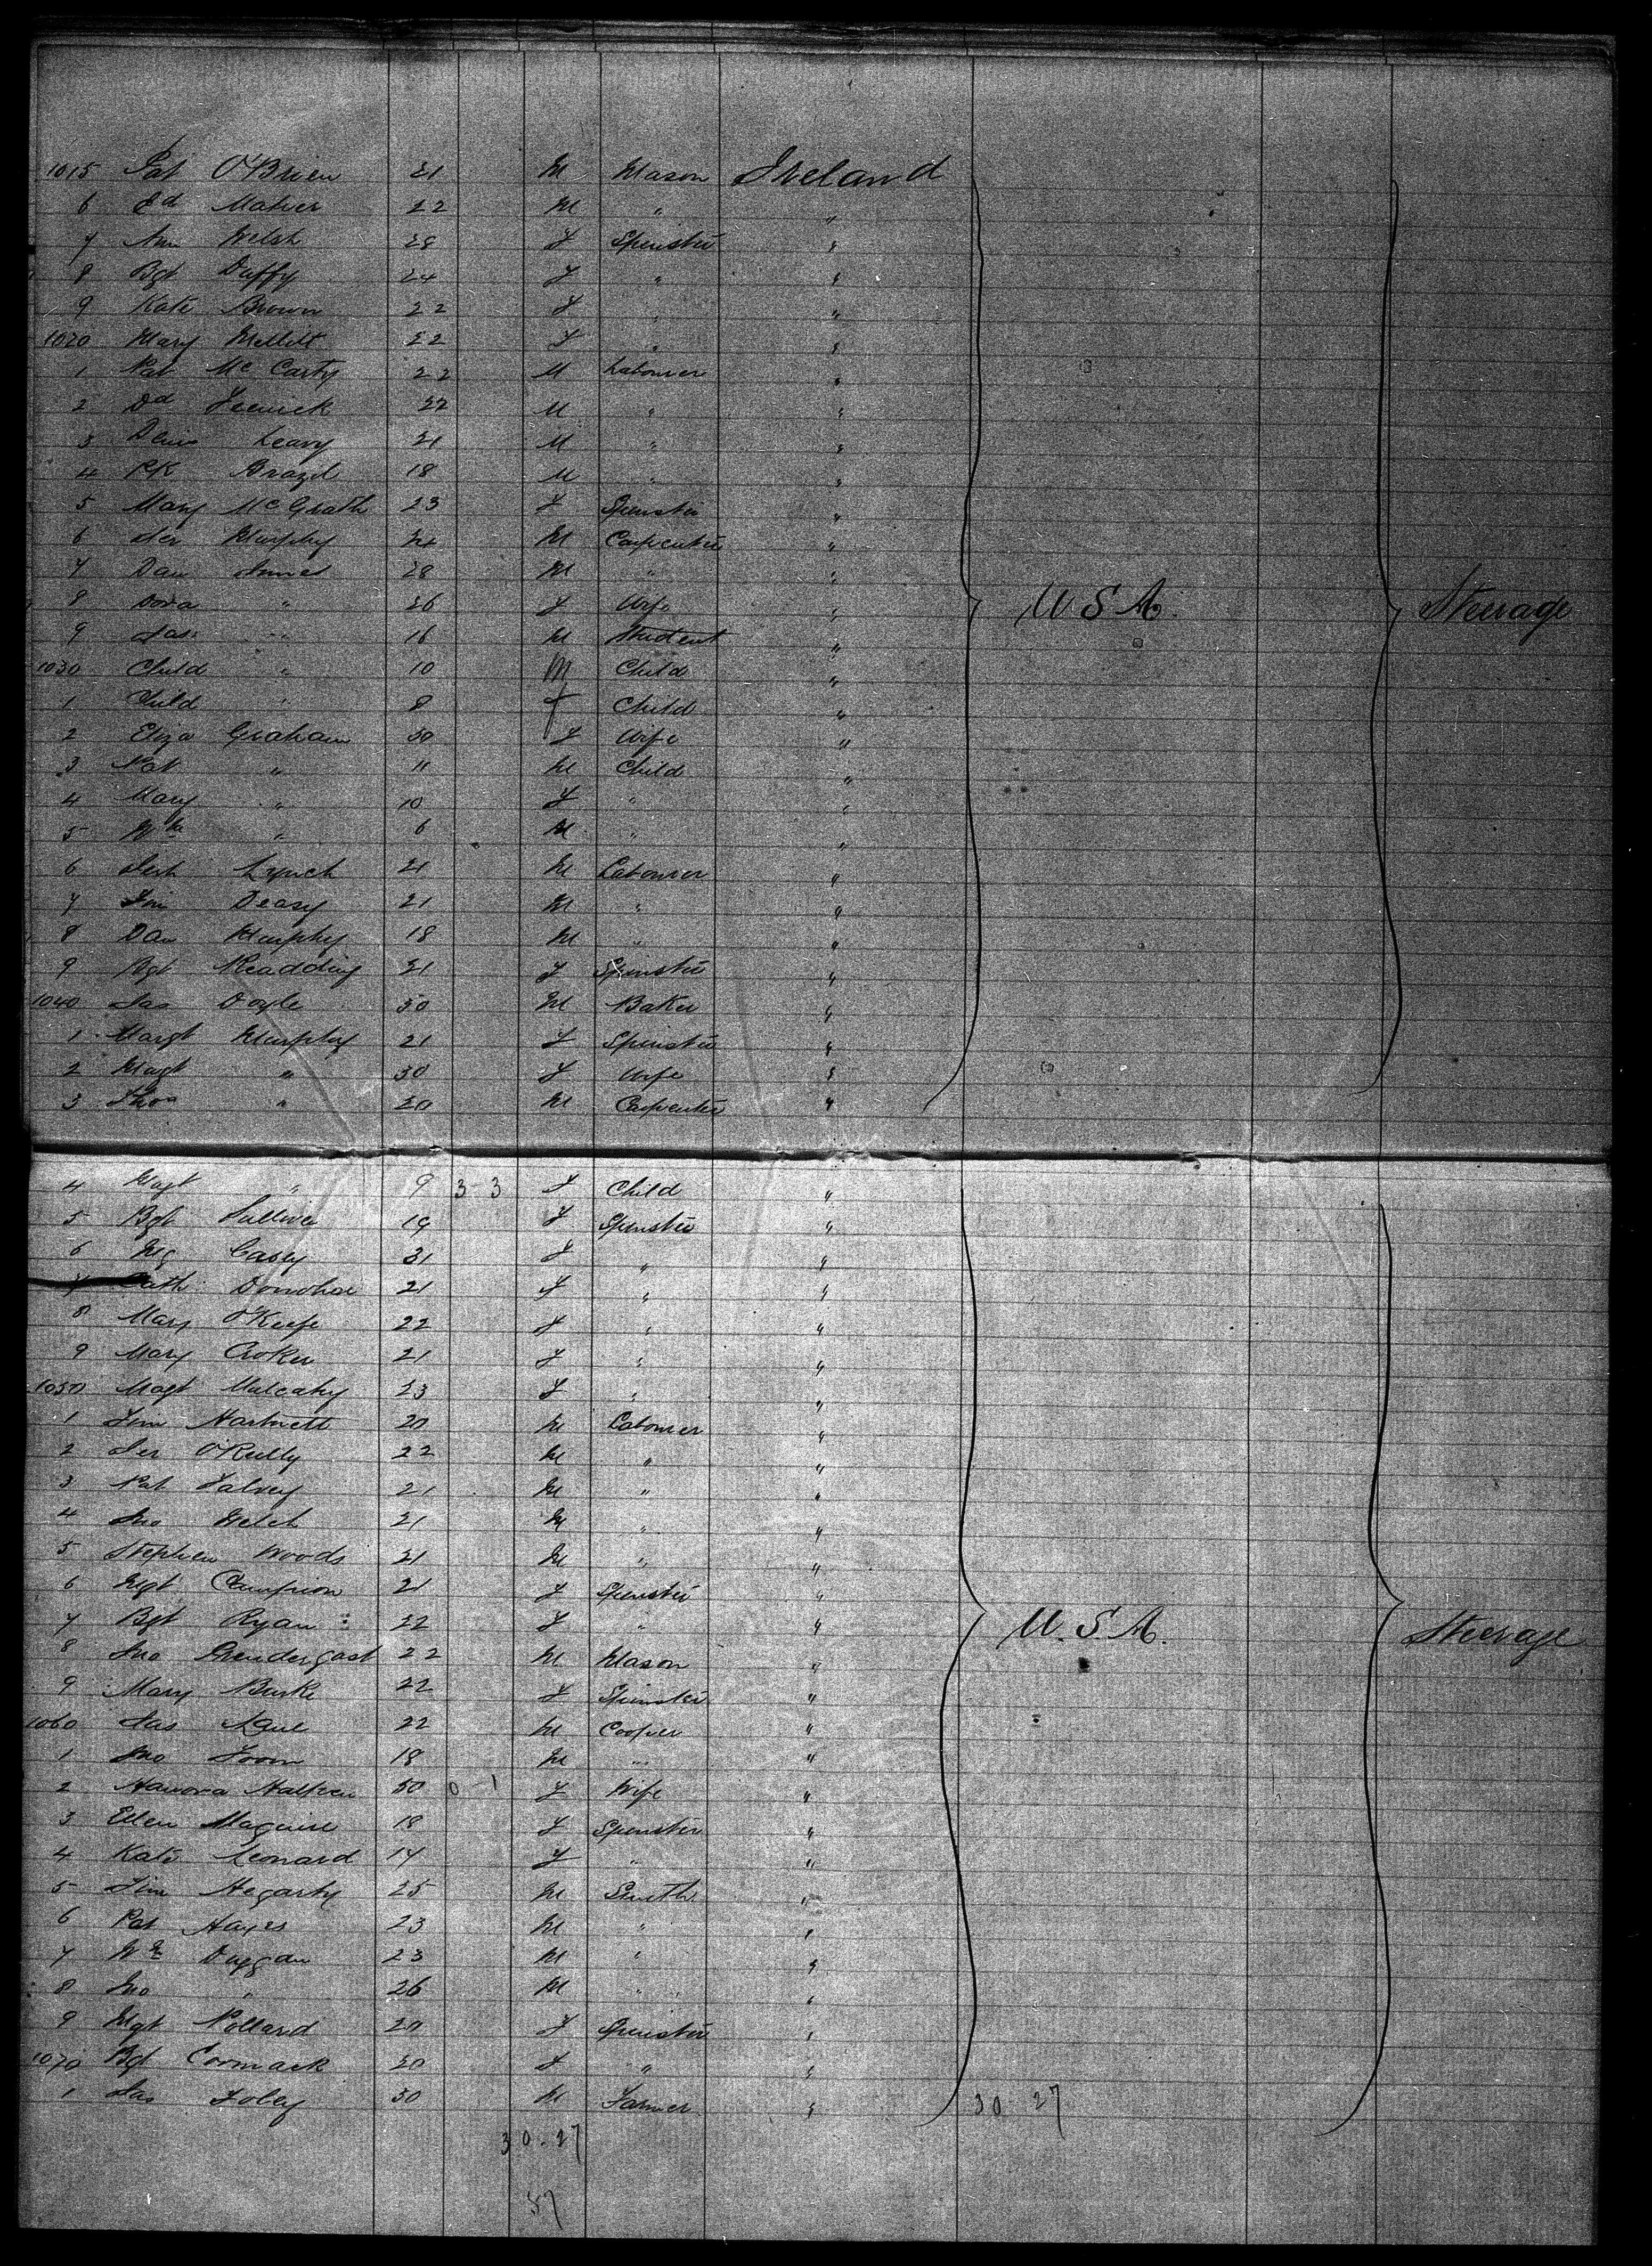 1015 Pat O'Brien 21 M Mason Ireland
6 Ed Maher 22 M " "
7 Ann Welsh 28 F Spinster "
8 Bgt Duffy 24 F " "
9 Kate Brown 22 F " "
1020 Mary Mellett 22 F " "
1 Pat McCarty 22 M Labourer "
2 Dd 22 M " "
3 Denis Leary 21 M " "
4 Pk Brazil 18 M " "
5 Mary McGrath 23 F Spinster "
6 Jer Murphy 24 M Carpenter "
7 Dan 28 M " "
8 Dora " 26 F Wife " U.S.A. Steerage
9 Jas " 16 M Student "
1030 Child " 10 M Child "
1 Child " 8 f Child "
2 Eliza Graham 30 F Wife "
3 Pat " 11 M Child "
4 Mary " 10 F " "
5 Wm " 6 M " "
6 Lynch 21 M Labourer "
7 Tim Deasy 21 M " "
8 Dan Murphy 18 M " "
9 Bgt Readding 21 F Spinster "
1040 Jas Doyle 30 M Baker "
1 Margt Murphy 21 F Spinster "
2 Magt " 30 F Wife "
3 Thos " 20 M Carpenter "
4 Magt " 9 3-3 F Child "
5 Bgt Sullivan 19 F Spinster "
6 Mg Casey 31 F " "
7 Cath Donohoe 21 F " "
8 Mary O'Keefe 22 F " "
9 Mary Croker 21 F " "
1050 Magt Mulcahy 23 F " "
1 Tim Hartnett 20 M Labourer "
2 Jer O'Reilly 22 M " "
3 Pat Falvey 21 M " "
4 Jno Welch 21 M " "
5 Stephen Woods 21 M " "
6 Mgt Campion 21 F Spinster "
7 Bgt Ryan 22 F " " U.S.A. Steerage
8 Jno Prendergast 22 M Mason "
9 Mary Burke 22 F Spinster "
1060 Jas 22 M Cooper "
1 Jno 18 M " "
2 Hanora Halpen 50 0-1 F Wife "
3 Ellen Maguire 18 F Spinster "
4 Kate Leonard 17 F " "
5 Tim Hegarty 25 M Smith "
6 Pat Hayes 23 M " "
7 Wm Duggan 23 M " "
8 Jno " 26 M " "
9 Mgt Pollard 20 F Spinster "
1070 Bgt Cormack 20 F " "
1 Jas Foley 30 M Farmer " 30-27
30-27
57